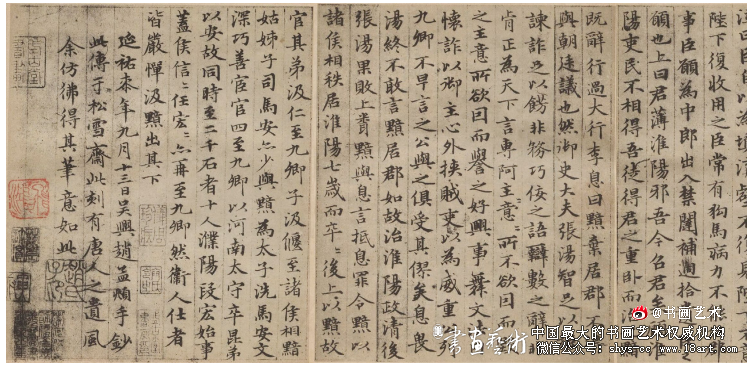 陛下復收用之臣常有狗馬病力不
事臣願為中郎出入禁闥補過拾
願也上曰君薄淮陽邪吾今召君
陽吏民不相得吾徒得君之重卧而治
既辭行過大行李息曰黯棄居郡不
與朝廷議也然御史大夫張湯智足以
諫詐足以飾非務巧佞之語辯數之辭
肯正為天下言專阿主意〻所不欲因而
之主意所欲因而譽之好興事舞文
懷詐以御主心外挾賊吏以為威重
九卿不早言之公與之俱受其僇矣息畏
湯終不敢言黯居郡如故治淮陽政清後
張湯果敗上聞黯與息言抵息罪令黯以
諸侯相秩居淮陽七歲而卒〻後上以黯故
官其弟汲仁至九卿子汲偃至諸侯相黯
姑姊子司馬安亦少與黯為太子洗馬安文
深巧善宦官四至九卿以河南太守卒昆弟
以安故同時至二千石者十人濮陽段宏始事
蓋侯信〻任宏〻亦再至九卿然衛人仕者
皆嚴憚汲黯出其下
延祐柒年九月十三日吳興趙孟頫手鈔
此傳于松雪齋此刻有唐人之遺風
余仿彿得其筆意如此
@书画艺术
中国最大的书画艺术权威机构
書畫藝術
微信公众号: shys-cc www.18art.com